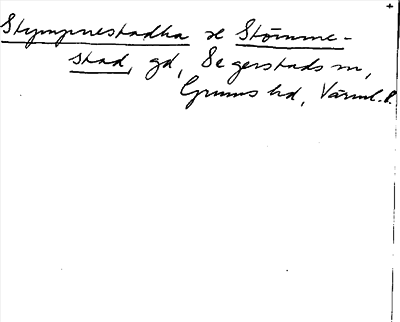 Stympnestadha se Stömne-
stad, gd, Segerstads sn,
Grums hd, Värml. l.